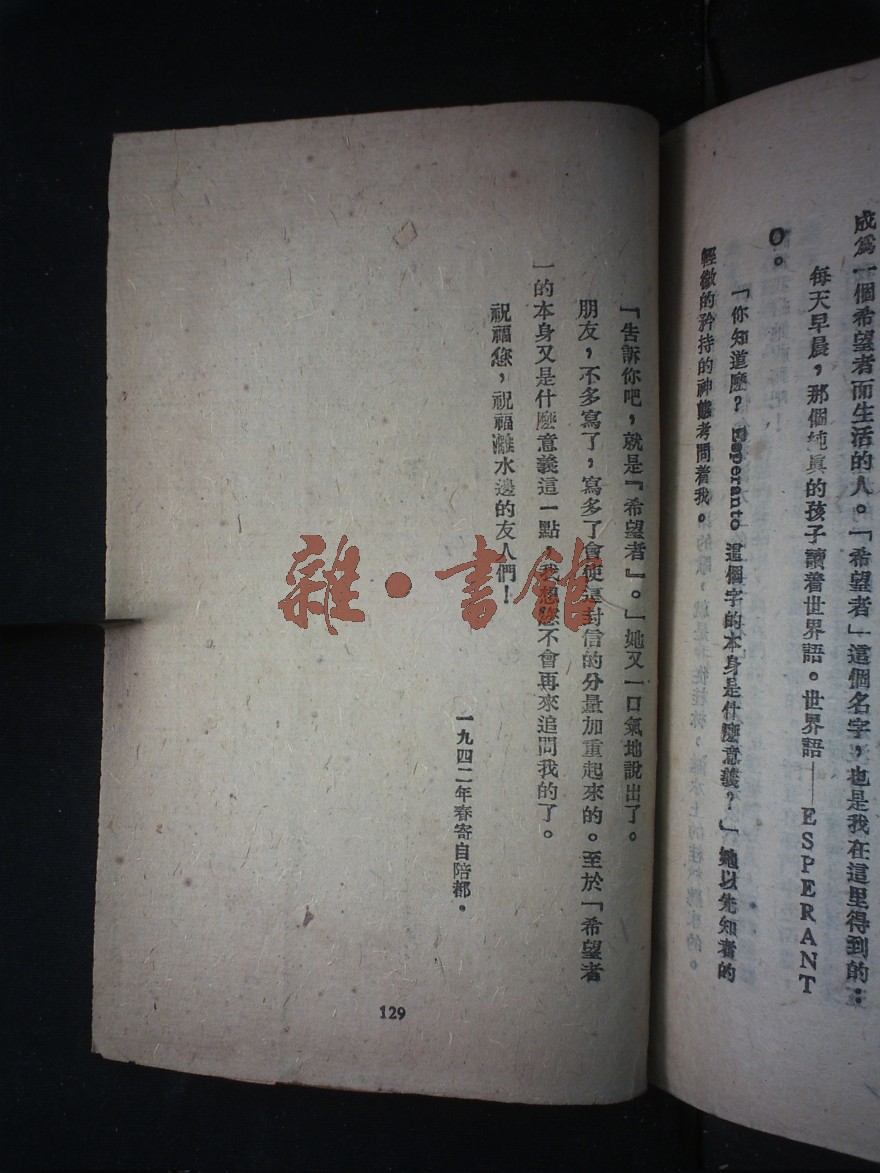 成爲一個希望者而生活的人。「希望者」這個名字，也是我在這里得到的：
每天早晨，那個純眞的孩子讀着世界語。世界語——ESPERANT
O。
「你知道麼？Esperanto 這個字的本身是什麼意義？」她以先知者的
輕微的矜持的神態考問着我。
「告訴你吧，就是『希望者』。」她又一口氣地說出了。
朋友，不多寫了，寫多了會使這封信的分量加重起來的。至於「希望者
」的本身又是什麼意義這一點，我想您不會再來追問我的了。
祝福您，祝福灕水邊的友人們！
一九四二年春寄自陪都。
129
雜·書館